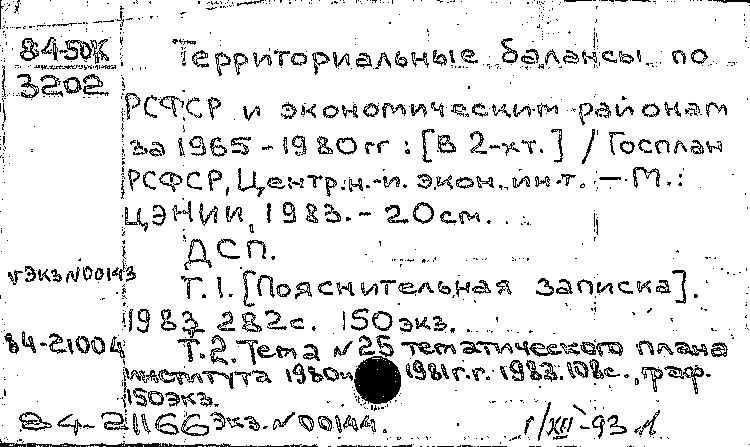 84-50К
3202
Территориальные балансы по
РСФСР и экономическим районам
за 1965-1980гг : [В 2-хт.] / Госплан
РСФСР, Центр.н.-и. экон. ин-т. — М.:
ЦЭНИИ, 1983. - 20см.
ДСП.
vЭкз N00143
Т.1. [Пояснительная записка].
1983 282с. 150экз.
84-21004
Т.2. Тема N25 тематического плана
института 1980и 1981г.г. 1983. 108с., граф.
150экз.
84-21166 Экз. N00144.
г/XII-93